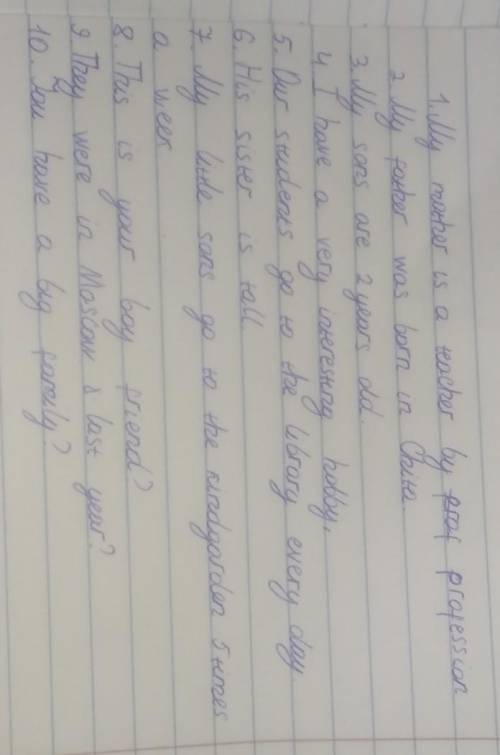 1. My mother is a teacher by prof profession
2. My father was born in Chita.
3. My sons are 2 years old.
4. I have a very interesting hobby.
5. Our students go to the library every day
6. His sister is tall
7. My little sons go to the kindgarden 5 times
a week
8. This is your boy friend?
9. They were in Moscow & last year?
10. You have a big family?